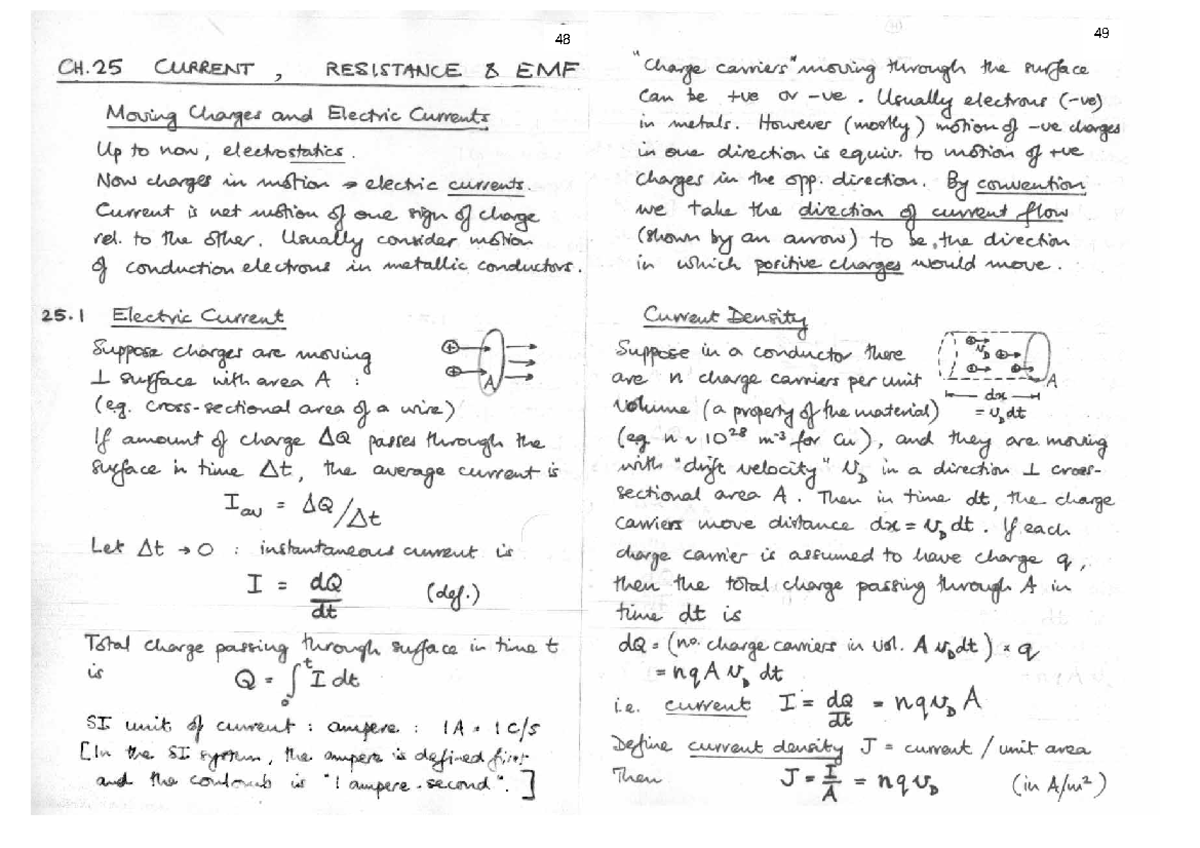 48
CH.25 CURRENT, RESISTANCE & EMF
Moving Charges and Electric Currents
Up to now, electrostatics.
Now charges in motion → electric currents.
Current is net motion of one sign of charge
rel. to the other. Usually consider motion
of conduction electrons in metallic conductors.
25.1 Electric Current
Suppose charges are moving
⊥ surface with area A :
(eg. cross-sectional area of a wire)
A
If amount of charge ΔQ passes through the
surface in time Δt, the average current is
I_av = ΔQ/Δt
Let Δt → 0 : instantaneous current is
I = dQ/dt (def.)
Total charge passing through surface in time t
is Q = ∫₀ᵗ I dt
SI unit of current : ampere : 1A = 1 C/s
[In the SI system, the ampere is defined first
and the coulomb is "1 ampere.second".]
49
"Charge carriers" moving through the surface
can be +ve or -ve. Usually electrons (-ve)
in metals. However (mostly) motion of -ve charges
in one direction is equiv. to motion of +ve
charges in the opp. direction. By convention
we take the direction of current flow
(shown by an arrow) to be, the direction
in which positive charges would move.
Current Density
Suppose in a conductor there
are n charge carriers per unit
volume (a property of the material)
v_D
A
dx
= v_D dt
(eg. n ~ 10²⁸ m⁻³ for Cu), and they are moving
with "drift velocity" v_D in a direction ⊥ cross-
sectional area A. Then in time dt, the charge
carriers move distance dx = v_D dt. If each
charge carrier is assumed to have charge q,
then the total charge passing through A in
time dt is
dQ = (no. charge carriers in vol. A v_D dt) × q
= nqA v_D dt
i.e. current I = dQ/dt = nqv_D A
Define current density J = current / unit area
Then J = I/A = nqv_D (in A/m²)